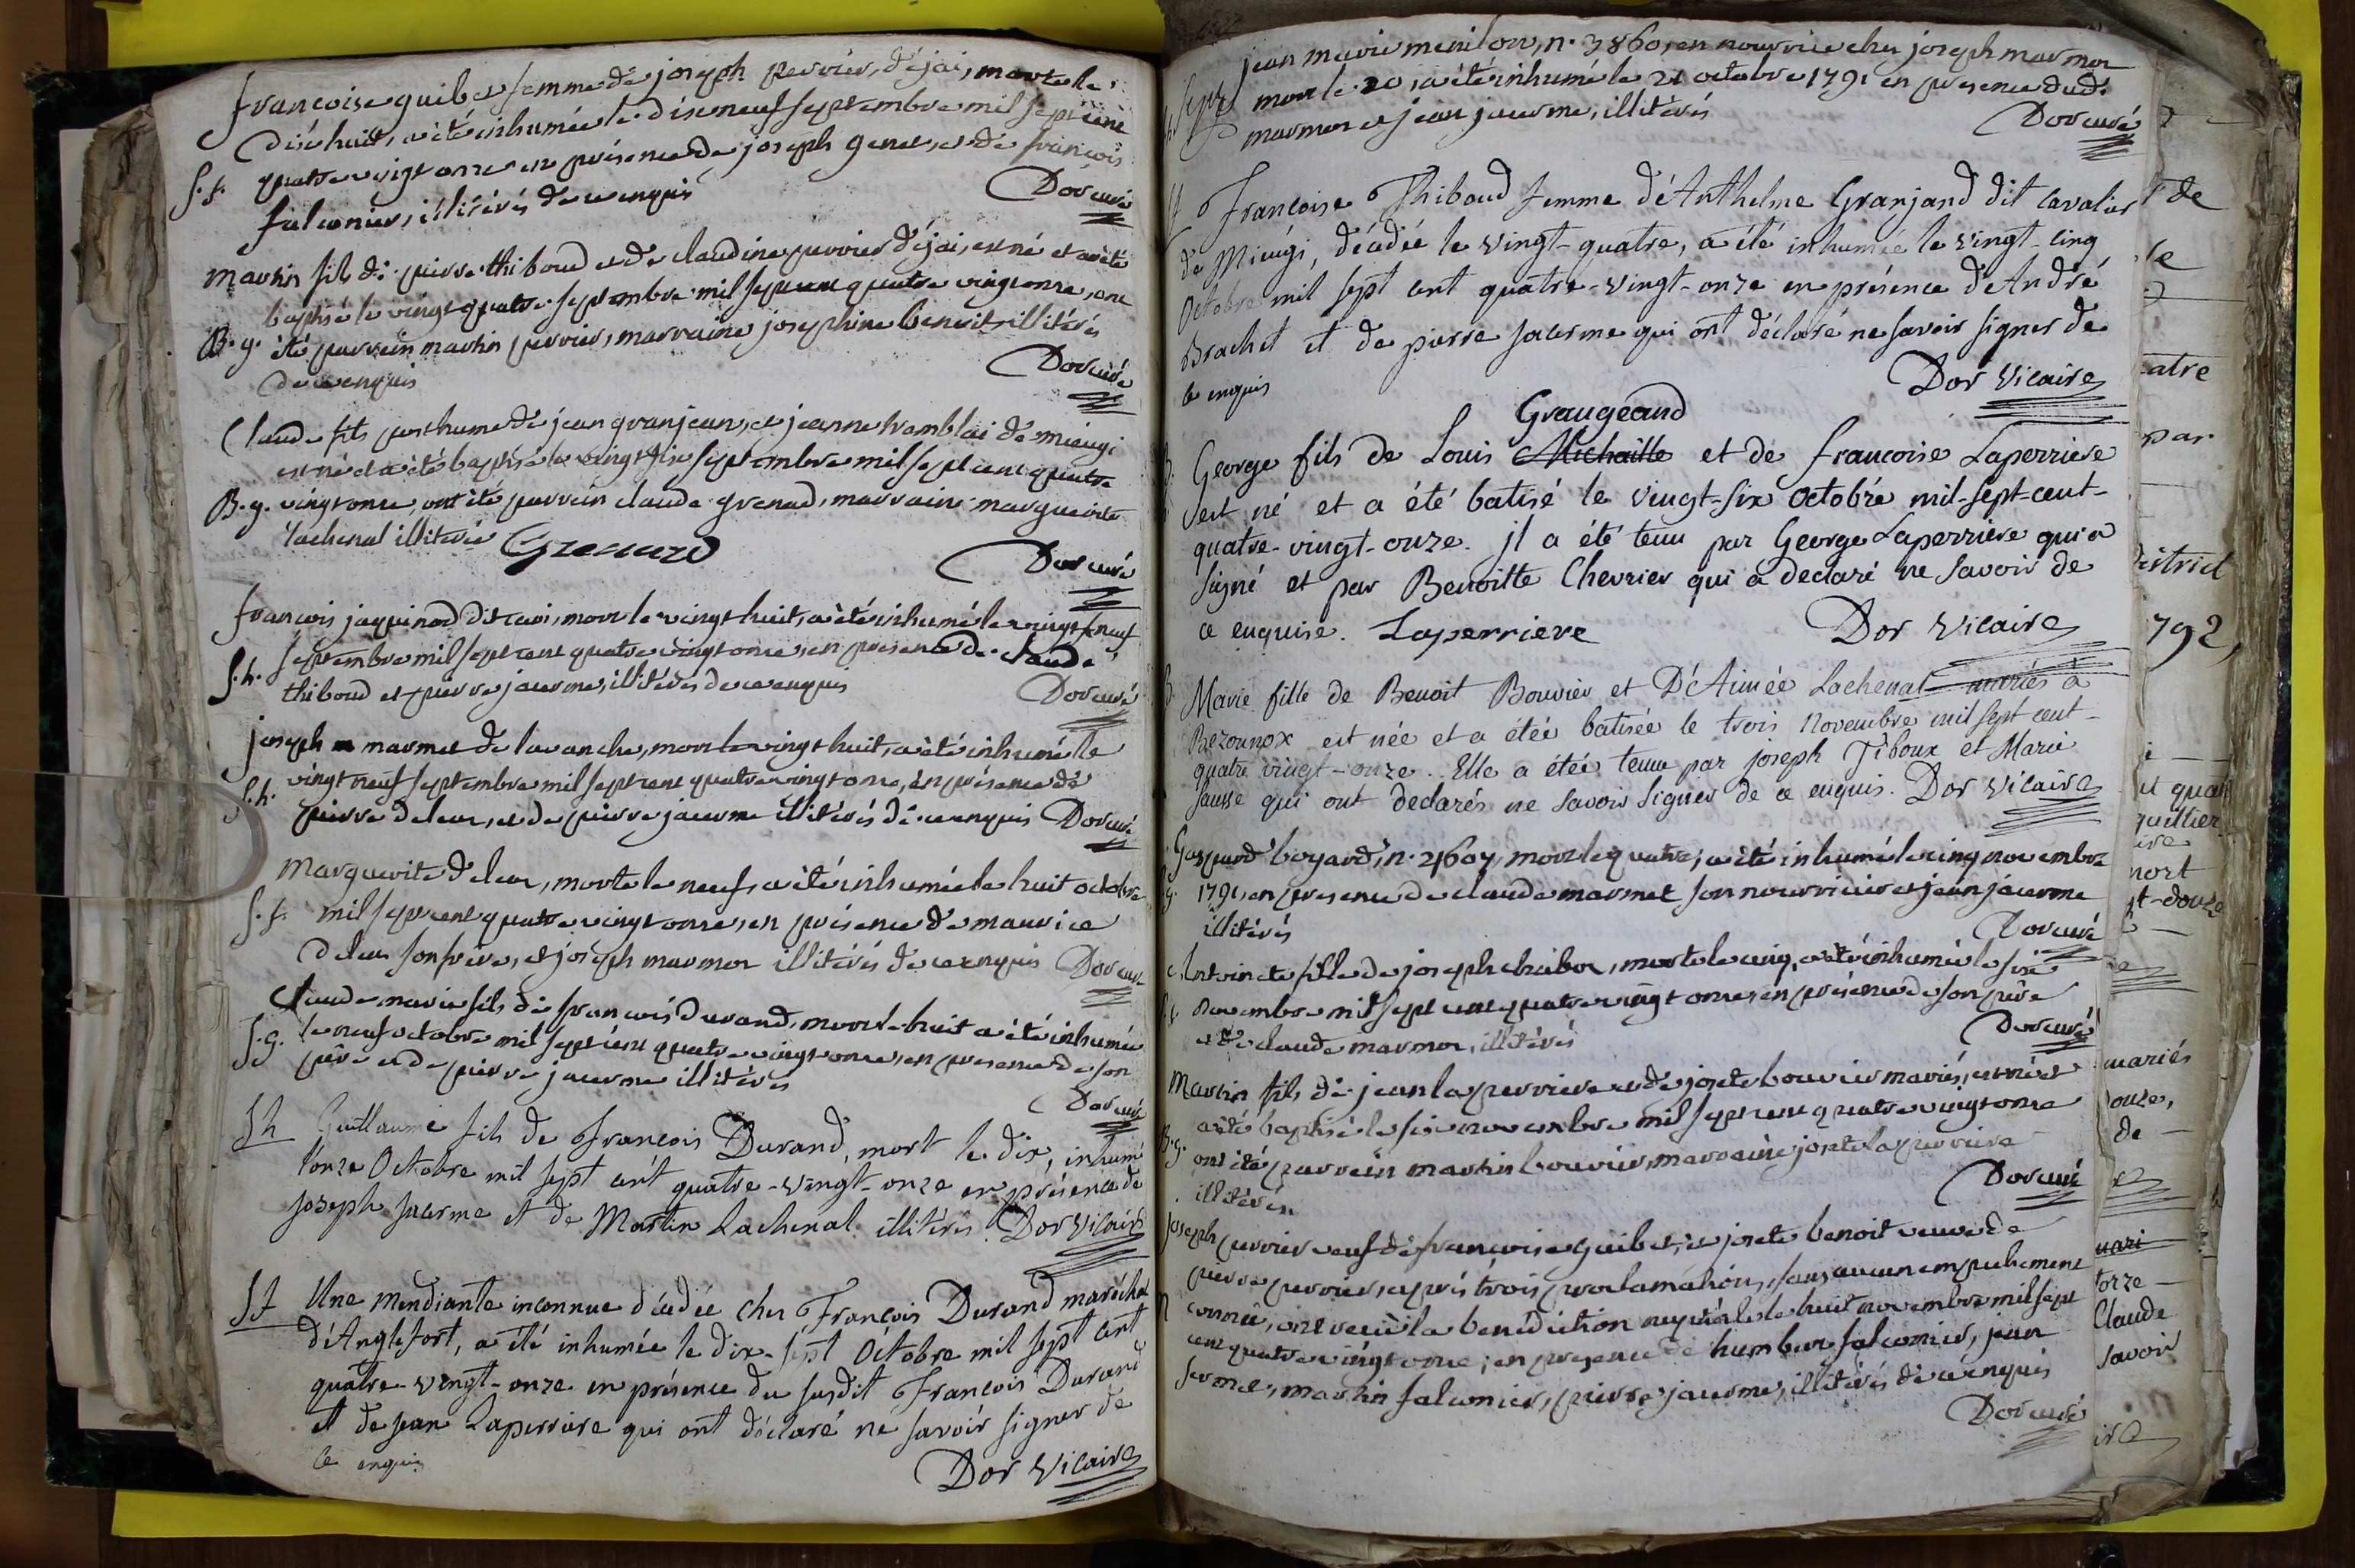 francoise guibet femme de joseph perrier, d'éjoi, morte le
dixhuit, a été inhumée le dixneuf septembre mil sept cent
S.f. quatre vingt onze en présence de joseph genet, et de françois
falconier, illitérés de ce enquis Dor curé
martin fils de pierre thiboud et de claudine perrier d'éjoi, est né et a été
baptisé le vingt quatre septembre mil sept cent quatre vingt onze, ont
B.g. été parrein martin perrier, marraine josephine benoit illitérés
de ce enquis Dor curé
Claude fils posthume de jean granjean, et jeanne tramblai de mieugi
est né et a été baptisé le vingt six septembre mil sept cent quatre
B.g. vingt onze, ont été parrein claude grenad, marraine marguerite
lachenal illiterée Grenard
Dor curé
francois jaquinod dit, mort le vingt huit, a été inhumé le vingt neuf
septembre mil sept cent quatre vingt onze, en presence de claude
S.h. thiboud et pierre jacerme, illitérés de ce enquis Dor curé
joseph marmet de lavanche, mort le vingt huit, a été inhumé le
S.h. vingt neuf septembre mil sept cent quatre vingt onze, en présence de
pierre deleur, et de pierre jacerme illitérés de ce enquis Dor curé
marguerite deleur, morte le neuf, a été inhumée le huit octobre
S.f. mil sept cent quatre vingt onze, en présence de maurice
deleur son frere, et joseph marmor illitérés de ce enquis Dor curé
Claude marie fils de francois Durand, mort le huit a été inhumé
S.g. le neuf octobre mil sept cent quatre vingt onze, en presence de son
père et de pierre jacerme illitérés
Dor curé
Sh Guillaume fils de François Durand, mort le dix, inhumé
l'onze Octobre mil sept cent quatre-vingt-onze en présence de
Joseph Jacerme et de Martin Lachenal illitérés. Dor Vicaire
Sf Une mendiante inconnue décédée chez François Durand maréchal
d'Anglefort, a été inhumée le dix-sept Octobre mil sept cent
quatre-vingt-onze en présence du susdit François Durand
et de Jean Laperriere qui ont déclaré ne savoir signer de
ce enquis
Dor Vicaire
jean marie meniton, n. 3860, en nourrice chez joseph marmor
mort le 20, a été inhumé le 21 octobre 1791 en presence dud.
marmor et jean jacerme, illitérés
Dor curé
Françoise Thiboud femme d'Anthelme Granjand dit Cavalier
de Mieugi, décédée le vingt-quatre, a été inhumée le vingt-cinq
Octobre mil sept cent quatre-vingt-onze en présence d'André
Brachet et de pierre Jacerme qui ont déclaré ne savoir signer de
ce enquis Dor Vicaire
Graugeand
George fils de Louis Michaille et de francoise Laperriere
est né et a été batisé le vingt-six octobre mil-sept-cent-
quatre-vingt-onze. jl a été tenu par George Laperriere qui a
signé et par Benoitte Chevrier qui a declaré ne savoir de
ce enquise. Laperriere Dor Vicaire
Marie fille de Benoit Bouvier et D'Aimée Lachenal mariés à
Bezounox est née et a étée batisée le trois Novembre mil sept cent-
quatre vingt-onze. Elle a étée tenue par joseph Tiboux et Marie
Sausse qui ont declarés ne savoir signer de ce enquis. Dor Vicaire
Gaspard boyard, n. 4607, mort le quatre, a été inhumé le cinq novembre
1791, en presence de claude marmet son nourricier et jean jacerme
illitérés
Dor curé
Antoinete fille de joseph, morte le cinq, a été inhumée le six
S.f. novembre mil sept cent quatre vingt onze, en présence de son père
et de claude marmor, illitérés Dor curé
Martin fils de jean laperriere et de josete bouvier mariés, est né et
a été baptisé le six novembre mil sept cent quatre vingt onze
B.g. ont été parrein martin bouvier, marraine josete laperriere
illitérés
Dor curé
joseph perrier veuf de francoise guibet, et josete benoit veuve de
pierre perrier, après trois proclamations, sans aucun empechement
connu, ont reçu la bénédiction nuptiale le huit novembre mil sept
cent quatre vingt onze, en presence de humbert falconier, jean
, martin falconier, pierre jacerme, illitérés de ce enquis
Dor curé
de
le
atre
par
istrict
792,
quillier
mort
gt-douze
mariés
onze,
de
mari
torze
Claude
savoir